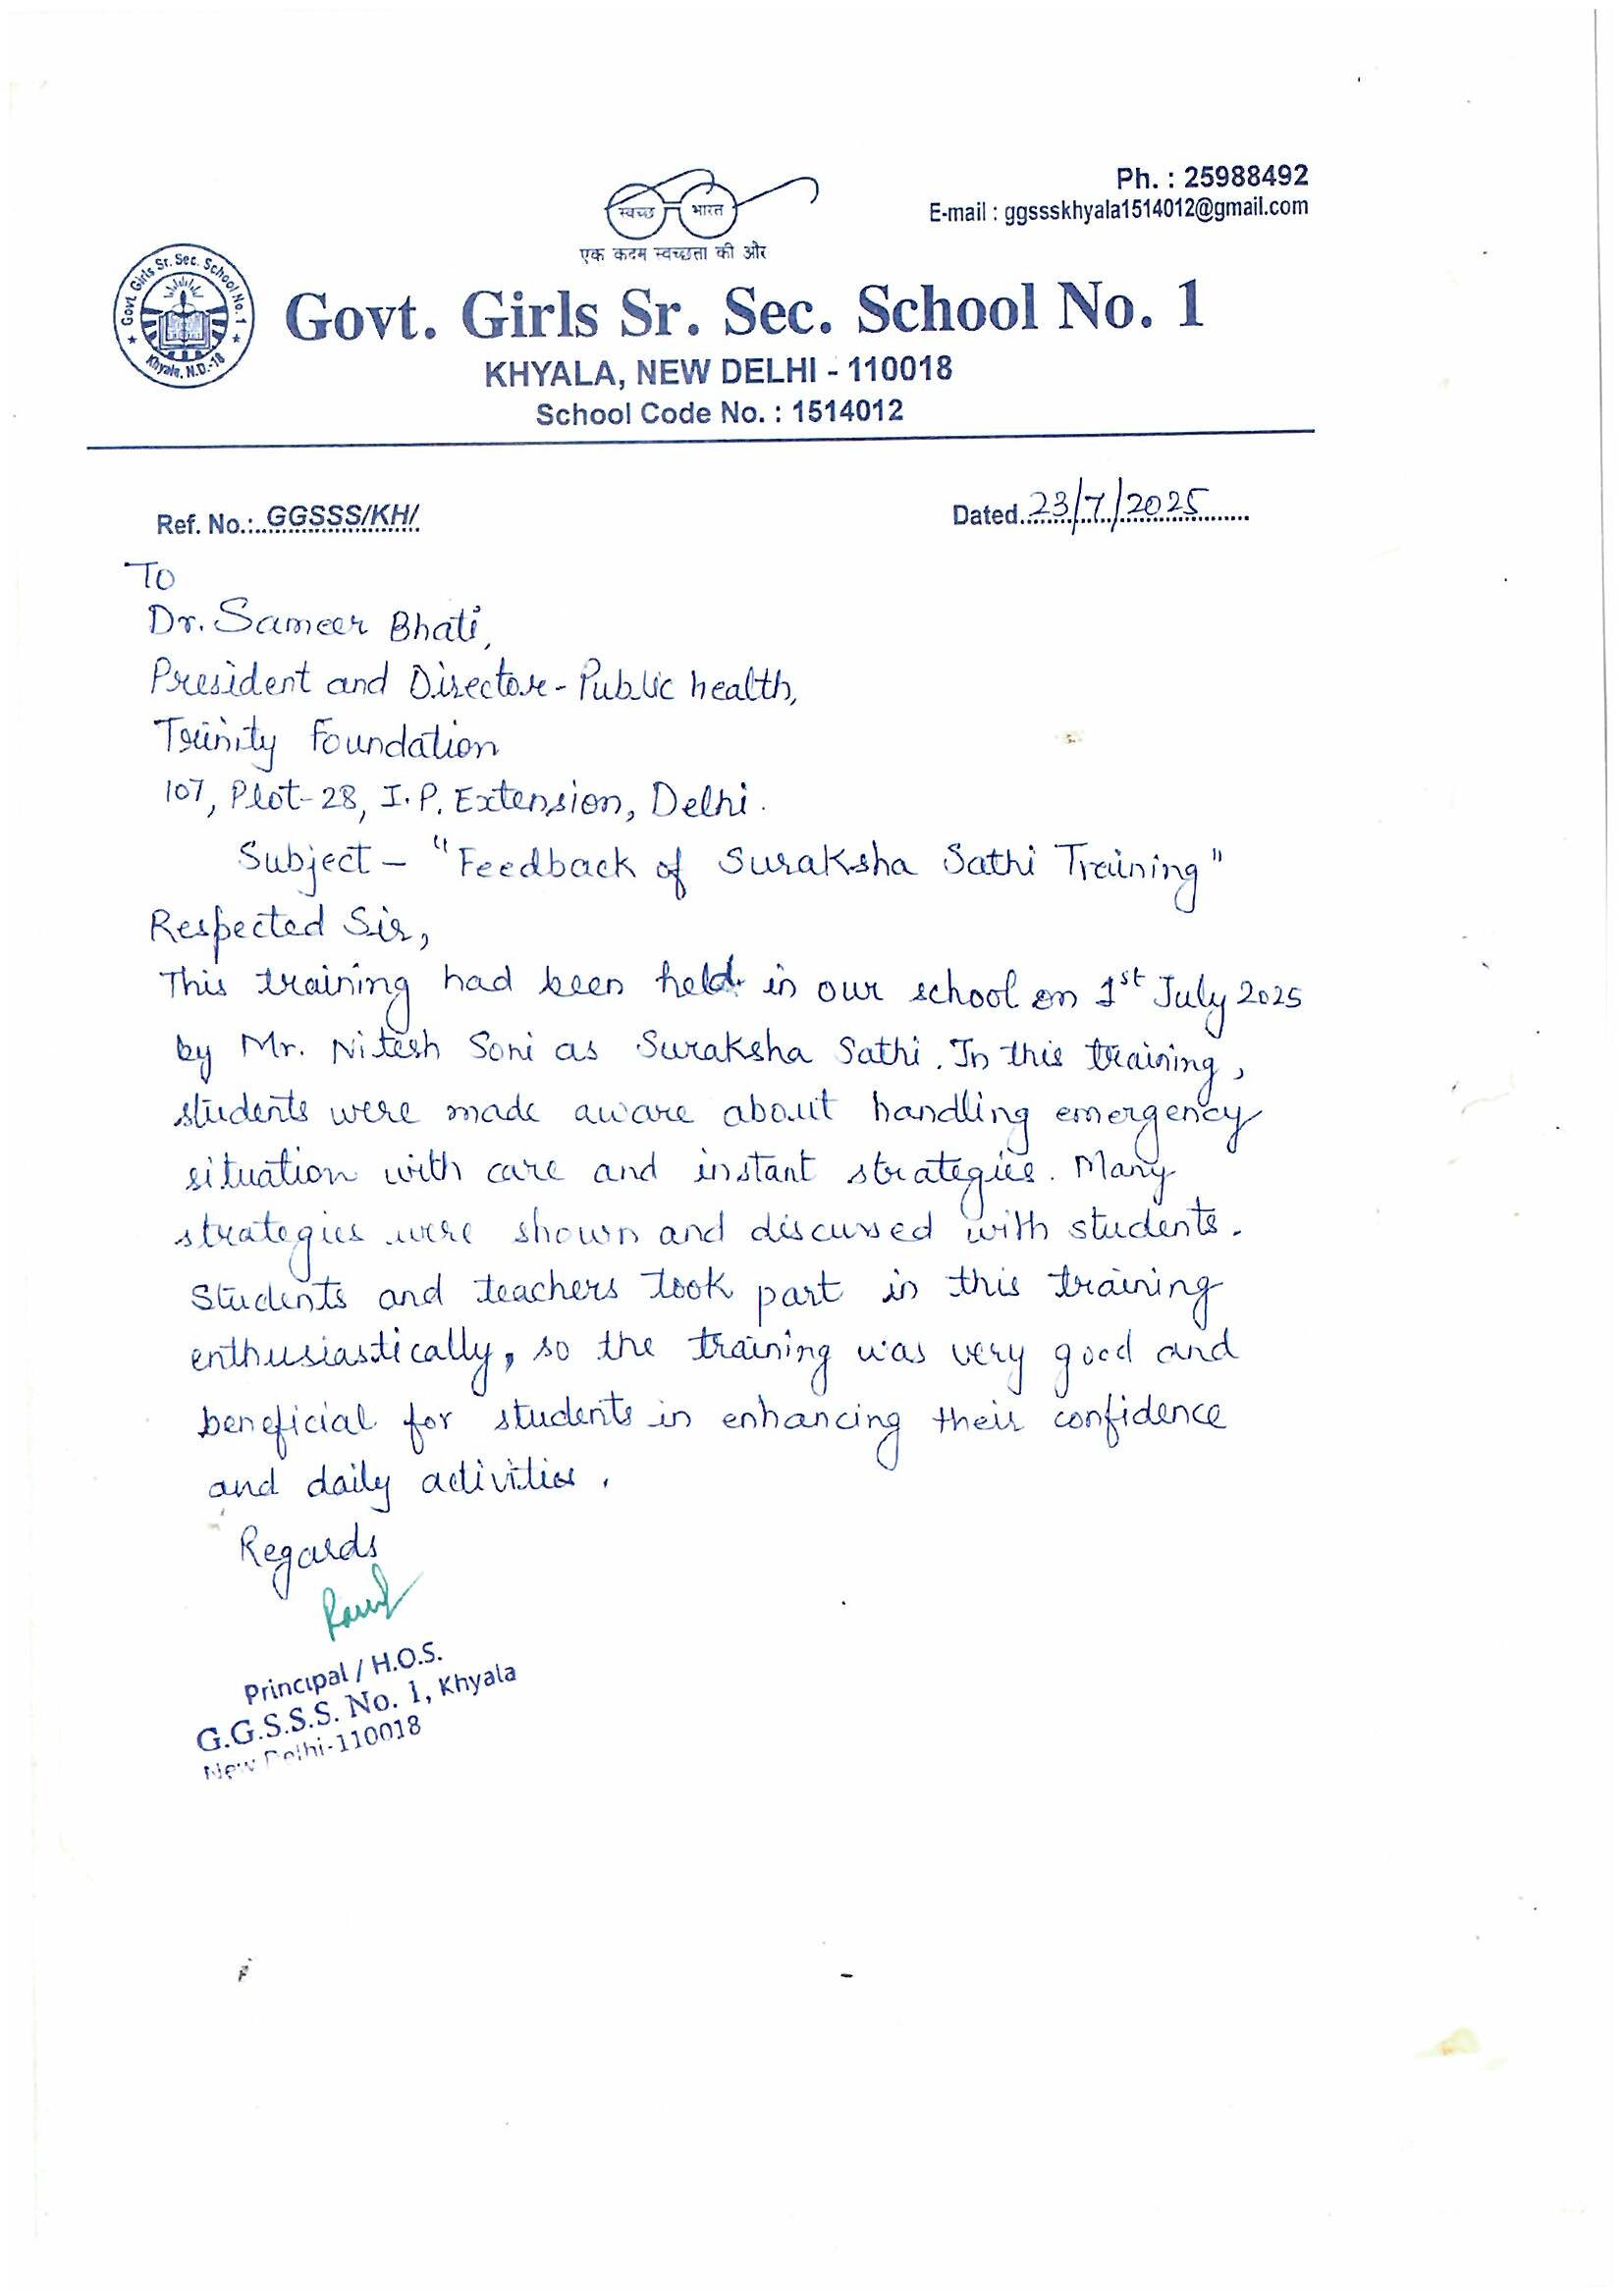 Ph. : 25988492
E-mail : ggssskhyala1514012@gmail.com
स्वच्छ भारत
एक कदम स्वच्छता की ओर
Govt. Girls Sr. Sec. School No. 1
Khyala, N.D.-18
Govt. Girls Sr. Sec. School No. 1
KHYALA, NEW DELHI - 110018
School Code No. : 1514012
Ref. No.:..GGSSS/KH/
Dated 23/7/2025
To
Dr. Sameer Bhati,
President and Director - Public health,
Trinity Foundation
107, Plot-28, I.P. Extension, Delhi.
Subject - "Feedback of Suraksha Sathi Training"
Respected Sir,
This training had been held in our school on 1st July 2025
by Mr. Nitesh Soni as Suraksha Sathi. In this training,
students were made aware about handling emergency
situation with care and instant strategies. Many
strategies were shown and discussed with students.
Students and teachers took part in this training
enthusiastically, so the training was very good and
beneficial for students in enhancing their confidence
and daily activities.
Regards
Principal / H.O.S.
G.G.S.S.S. No. 1, Khyala
New Delhi-110018